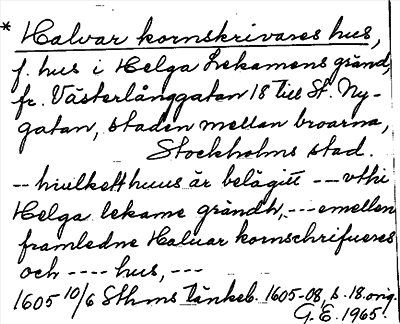 * Halvar kornskrivares hus,
f. hus i Helga Lekamens gränd,
fr. Västerlånggatan 18 till St. Ny-
gatan, staden mellan broarna,
Stockholms stad.
-- huilkett huus är belägitt --- vthi
Helga lekame grändh, --- emellen
framledne Haluar kornschrifueres
och ---- hus, ---
1605 10/6 Sthms tänkeb. 1605-08, s. 18 orig.
G.E. 1965.